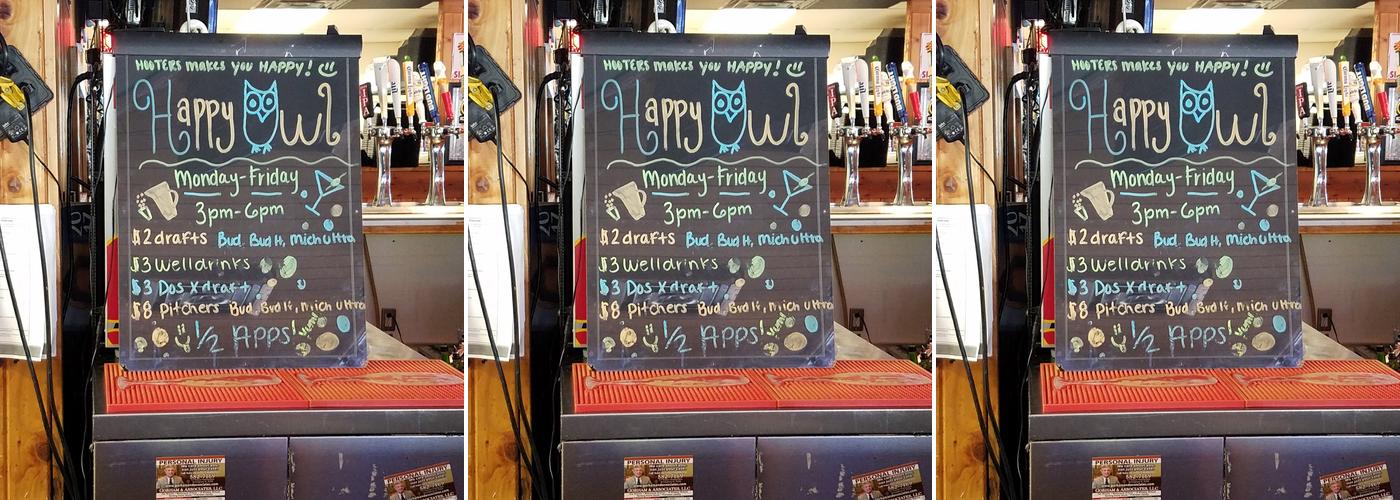 HOOTERS makes you HAPPY!
Happy Owl
Monday-Friday
3pm-6pm
$2 drafts Bud, Bud lt, mich ultra
$3 Well drinks
$3 Dos X draft
$8 Pitchers Bud, Bud lt, mich ultra
1/2 Apps! Yum!
PERSONAL INJURY
GORHAM & ASSOCIATES, LLC
PERSONAL INJURY
HOOTERS makes you HAPPY!
Happy Owl
Monday-Friday
3pm-6pm
$2 drafts Bud, Bud lt, mich ultra
$3 Well drinks
$3 Dos X draft
$8 Pitchers Bud, Bud lt, mich ultra
1/2 Apps! Yum!
PERSONAL INJURY
GORHAM & ASSOCIATES, LLC
PERSONAL INJURY
HOOTERS makes you HAPPY!
Happy Owl
Monday-Friday
3pm-6pm
$2 drafts Bud, Bud lt, mich ultra
$3 Well drinks
$3 Dos X draft
$8 Pitchers Bud, Bud lt, mich ultra
1/2 Apps! Yum!
PERSONAL INJURY
GORHAM & ASSOCIATES, LLC
PERSONAL INJURY